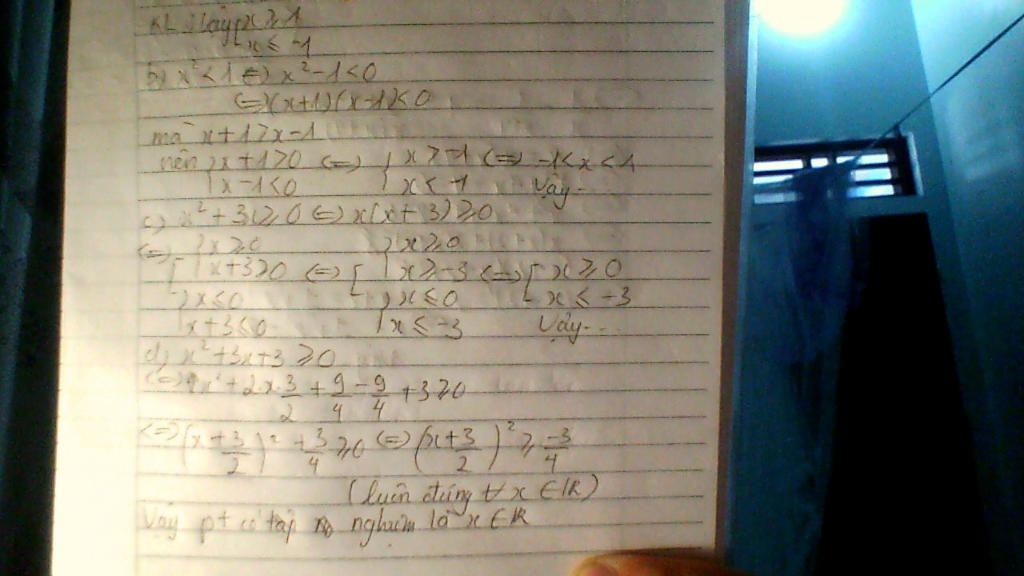 KL: Vậy [x ≥ 1
[x ≤ -1
b) x² < 1 <=> x² - 1 < 0
<=> (x+1)(x-1) < 0
mà x+1 > x-1
nên { x+1 > 0 <=> { x > -1 <=> -1 < x < 1
{ x-1 < 0 { x < 1 Vậy...
c) x² + 3x ≥ 0 <=> x(x+3) ≥ 0
<=> { x ≥ 0 { x ≥ 0
[ { x+3 ≥ 0 <=> [ { x ≥ -3 <=> [ x ≥ 0
{ x ≤ 0 { x ≤ 0 x ≤ -3
{ x+3 ≤ 0 { x ≤ -3 Vậy...
d) x² + 3x + 3 ≥ 0
<=> x² + 2x.3/2 + 9/4 - 9/4 + 3 ≥ 0
<=> (x + 3/2)² + 3/4 ≥ 0 <=> (x + 3/2)² ≥ -3/4
(luôn đúng ∀ x ∈ R)
Vậy pt có tập nghiệm là x ∈ R